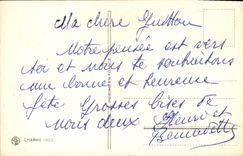 Ma chère Guitton
Notre pensée est vers
toi et nous te souhaitons
une bonne et heureuse
fête Grosses bises de
nous deux Pierre et
Bernadette